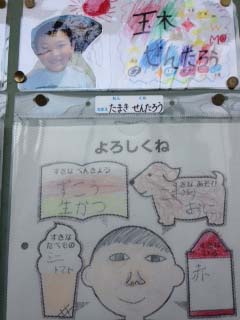 玉木
せんたろう
ねん
くみ
なまえ
たまき せんたろう
よろしくね
すきな べんきょう
ずこう
生かつ
すきな あそび
すきな
たべもの
ミニ
トマト
すきな
いろ
赤